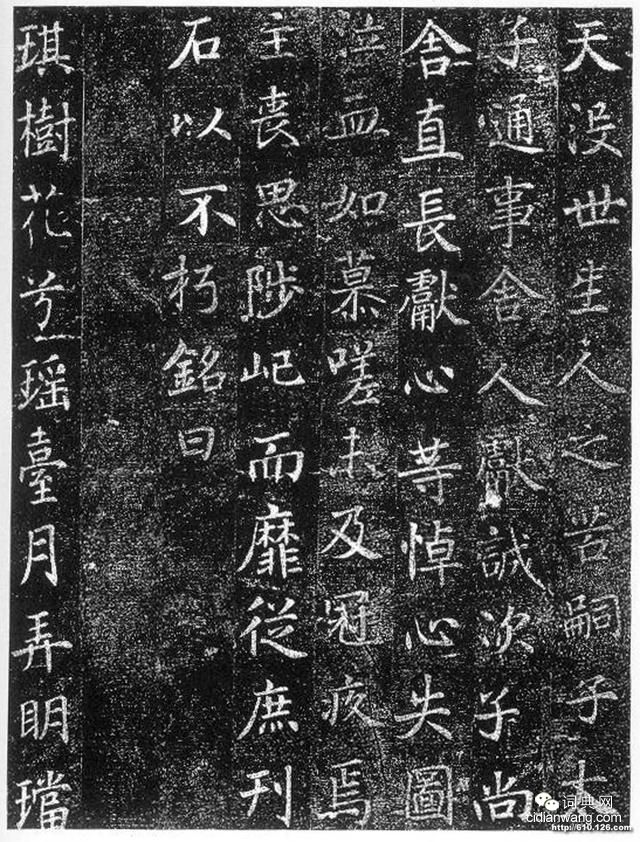 天没世生人之苦嗣子太
子通事舍人獻誠次子尚
舍直長獻心等悼心失圖
泣血如慕嗟未及冠疚焉
主喪思陟屺而靡從庶刊
石以不朽銘曰
琪樹花瑶臺月弄明璫
词典网
cidianwang.com
http://610.126.com